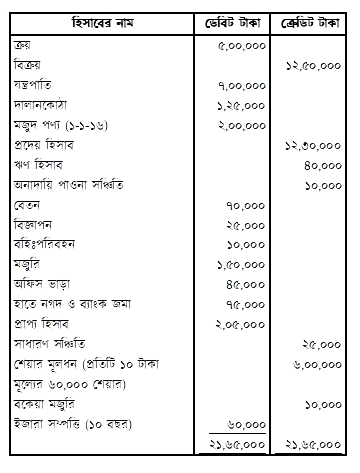 হিসাবের নাম ডেবিট টাকা ক্রেডিট টাকা
ক্রয় ৫,০০,০০০
বিক্রয় ১২,৫০,০০০
যন্ত্রপাতি ৭,০০,০০০
দালানকোঠা ১,২৫,০০০
মজুদ পণ্য (১-১-১৬) ২,০০,০০০
প্রদেয় হিসাব ১২,৩০,০০০
ঋণ হিসাব ৪০,০০০
অনাদায়ি পাওনা সঞ্চিতি ১০,০০০
বেতন ৭০,০০০
বিজ্ঞাপন ২৫,০০০
বহিঃপরিবহন ১০,০০০
মজুরি ১,৫০,০০০
অফিস ভাড়া ৪৫,০০০
হাতে নগদ ও ব্যাংক জমা ৭৫,০০০
প্রাপ্য হিসাব ২,০৫,০০০
সাধারণ সঞ্চিতি ২৫,০০০
শেয়ার মূলধন (প্রতিটি ১০ টাকা ৬,০০,০০০
মূল্যের ৬০,০০০ শেয়ার)
বকেয়া মজুরি ১০,০০০
ইজারা সম্পত্তি (১০ বছর) ৬০,০০০
২১,৬৫,০০০ ২১,৬৫,০০০